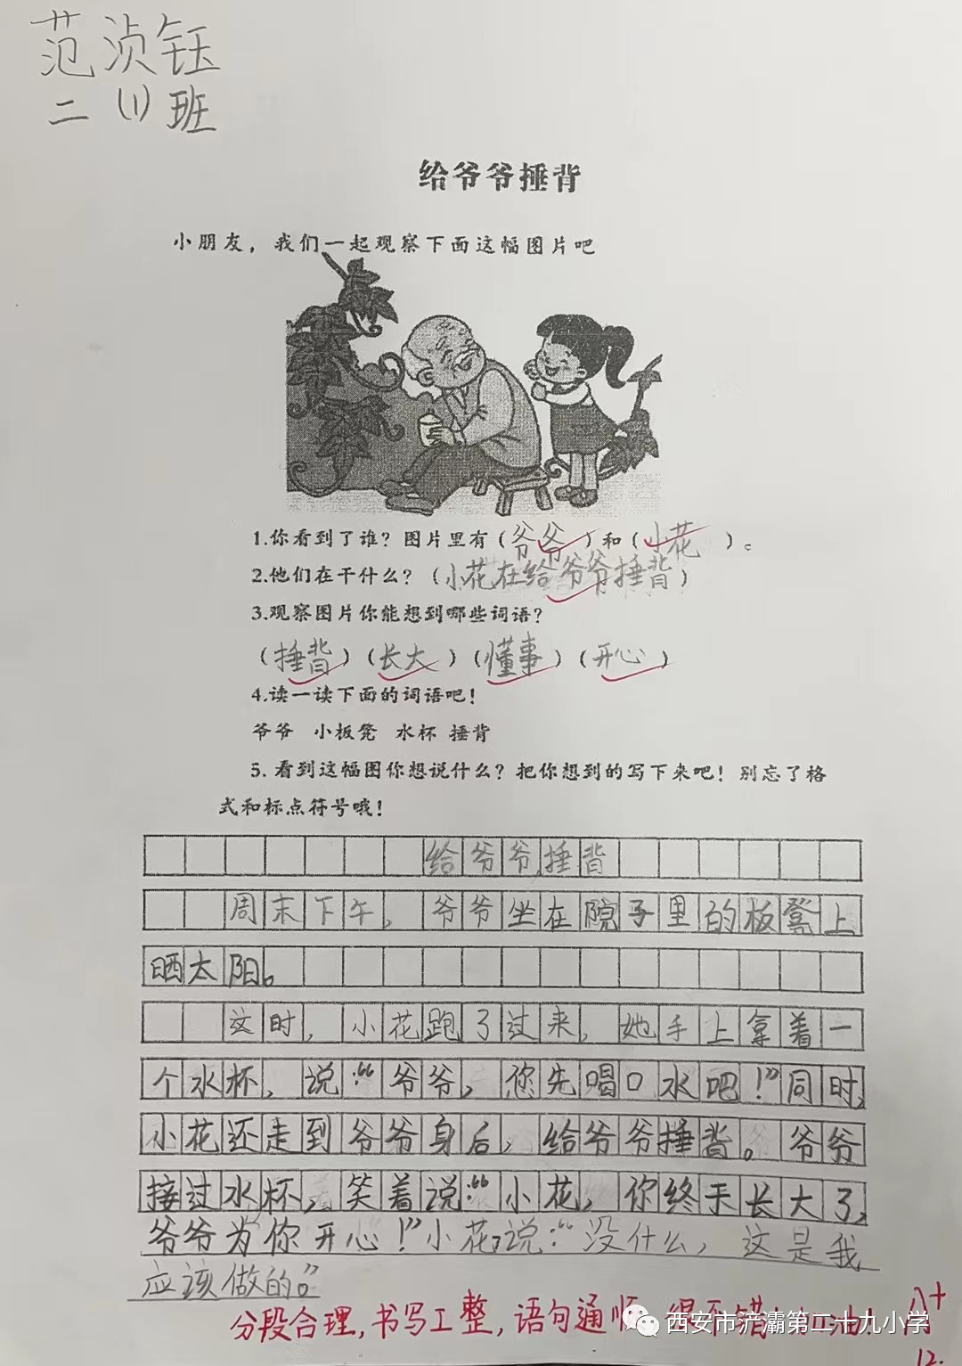 范浈钰
二(1)班
给爷爷捶背
小朋友，我们一起观察下面这幅图片吧
1.你看到了谁？图片里有（爷爷）和（小花）。
2.他们在干什么？（小花在给爷爷捶背）
3.观察图片你能想到哪些词语？
（捶背）（长大）（懂事）（开心）
4.读一读下面的词语吧！
爷爷 小板凳 水杯 捶背
5.看到这幅图你想说什么？把你想到的写下来吧！别忘了格
式和标点符号哦！
给爷爷捶背
周末下午，爷爷坐在院子里的板凳上
晒太阳。
这时，小花跑了过来，她手上拿着一
个水杯，说：“爷爷，你先喝口水吧！”同时，
小花还走到爷爷身后，给爷爷捶背。爷爷
接过水杯，笑着说：“小花，你终于长大了，
爷爷为你开心！”小花说：“没什么，这是我
应该做的。”
分段合理，书写工整，语句通顺 很不错！加油！
西安市浐灞第二十九小学
12.